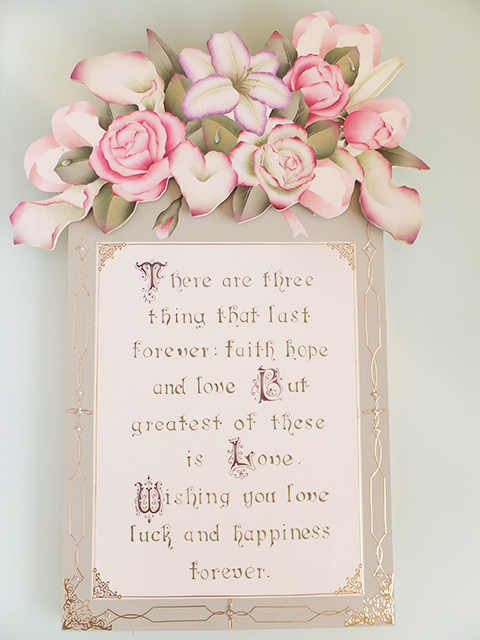 There are three
thing that last
forever: faith hope
and love But
greatest of these
is Love.
Wishing you love
luck and happiness
forever.